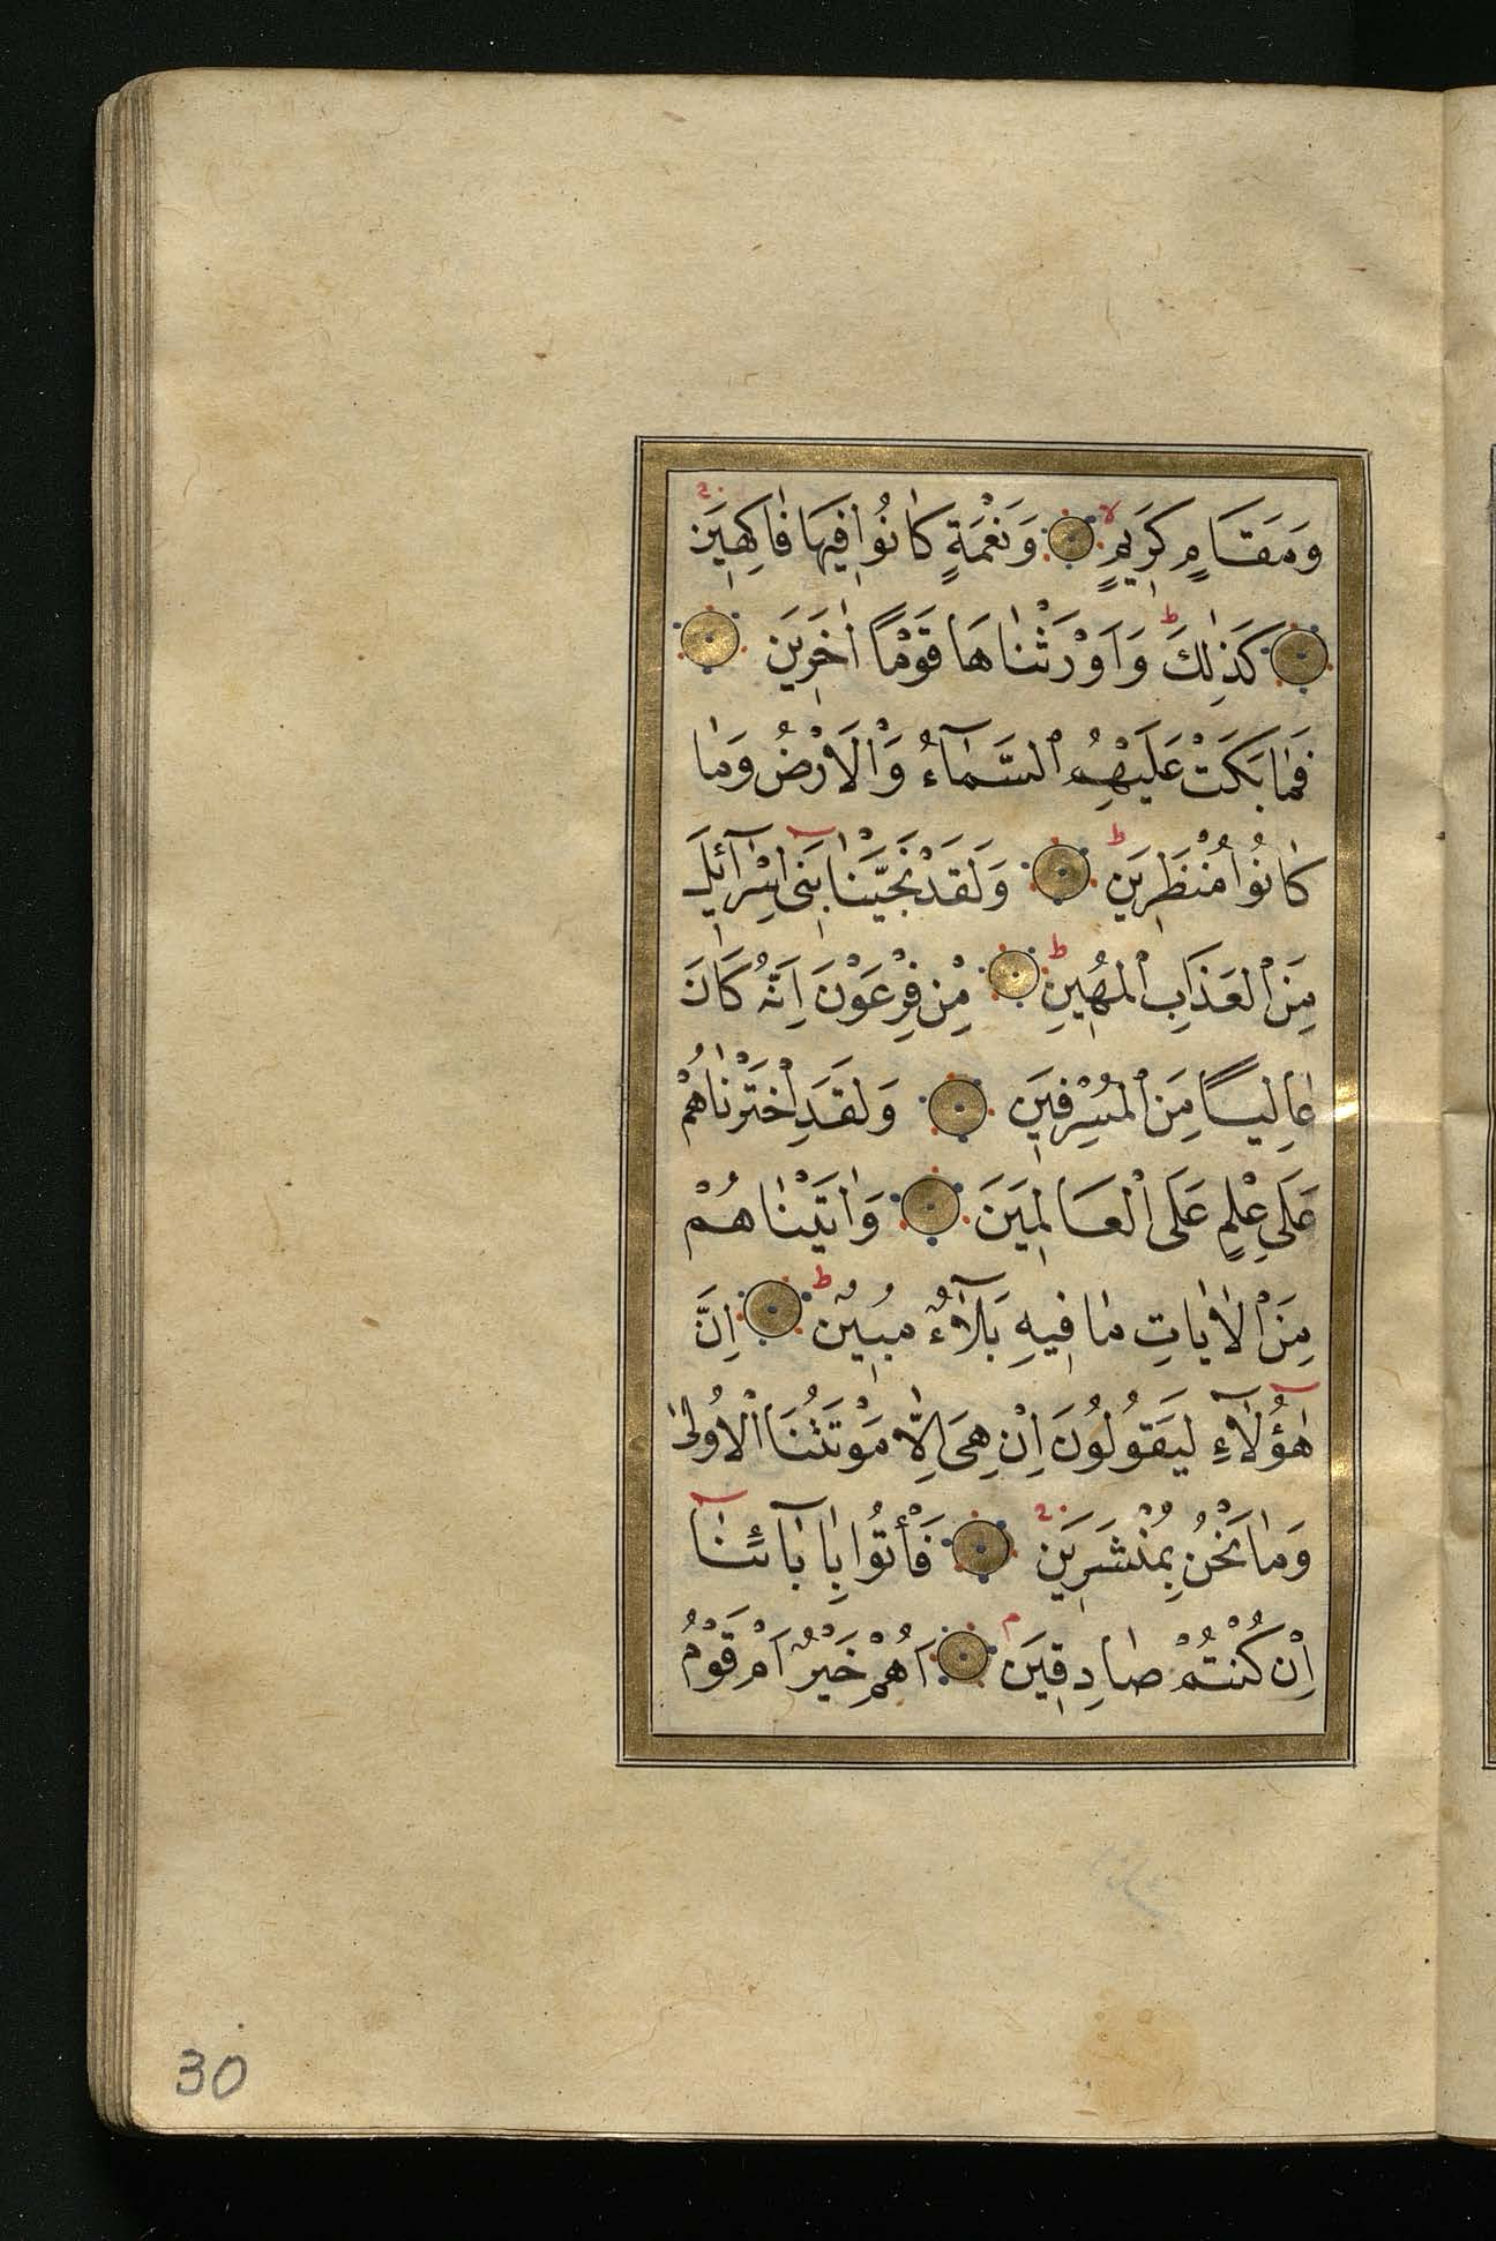 وَمَقَامٍ كَرِيمٍ ۙ وَنَعْمَةٍ كَانُوا فِيهَا فَاكِهِينَ
كَذٰلِكَ ۜ وَاَوْرَثْنَاهَا قَوْمًا اٰخَرِينَ
فَمَا بَكَتْ عَلَيْهِمُ السَّمَآءُ وَالْاَرْضُ وَمَا
كَانُوا مُنْظَرِينَ ط وَلَقَدْ نَجَّيْنَا بَنِى اِسْرَآئِيلَ
مِنَ الْعَذَابِ الْمُهِينِ ط مِنْ فِرْعَوْنَ اِنَّهُ كَانَ
عَالِيًا مِنَ الْمُسْرِفِينَ وَلَقَدِ اخْتَرْنَاهُمْ
عَلَى عِلْمٍ عَلَى الْعَالَمِينَ وَاٰتَيْنَاهُمْ
مِنَ الْاٰيَاتِ مَا فِيهِ بَلَآءٌ مُبِينٌ ط اِنَّ
هٰؤُلَآءِ لَيَقُولُونَ اِنْ هِىَ اِلَّا مَوْتَتُنَا الْاُولٰى
وَمَا نَحْنُ بِمُنْشَرِينَ فَأْتُوا بِاٰبَآئِنَا
اِنْ كُنْتُمْ صَادِقِينَ م اَهُمْ خَيْرٌ اَمْ قَوْمُ
30